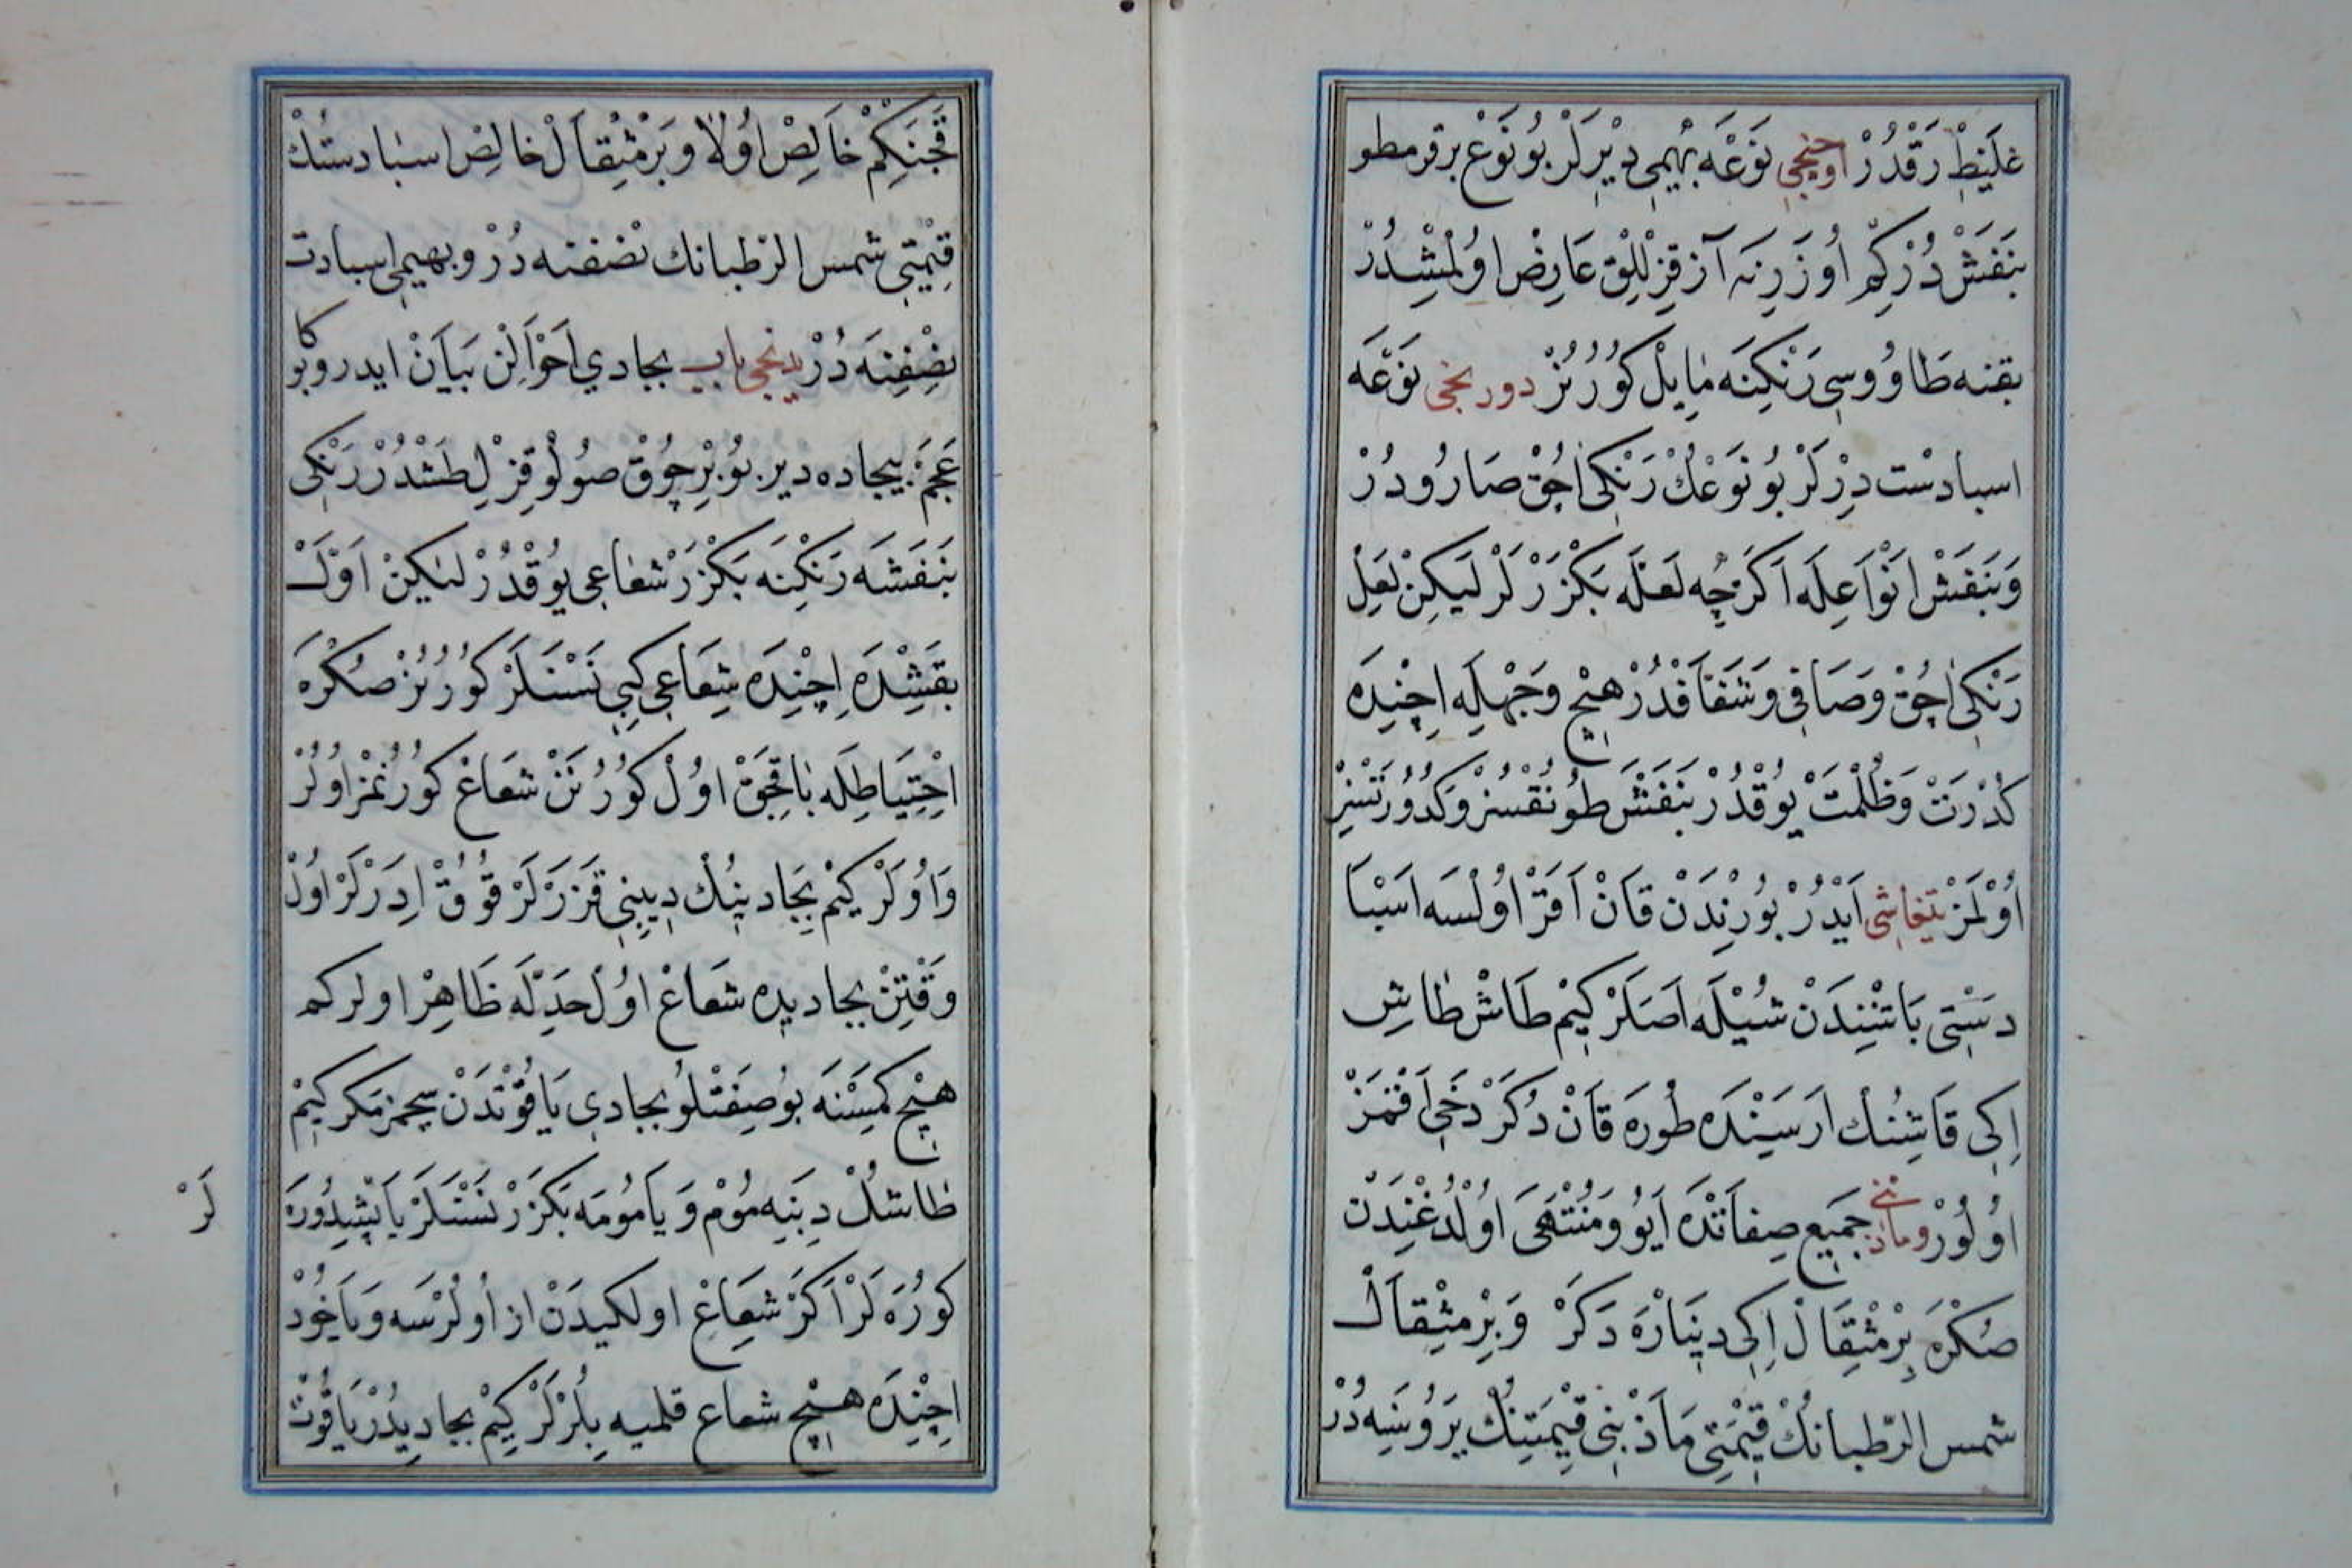 غَلَيَظِْ رَقْدُرْ اوچنجی نَوْعَه بَهیمِی دیْرِلَرْ بُو نَوْع بر قرمطو
بَنَفَشْ دُرْ کِمّ اُوزَرِنَه آز قِزْلِلِقْ عَارِضْ اوُلْمُشْدُرْ
بقنه طَاوُوسِی رَنْکِنَه مٰایِلْ کُورُنُرْ دوردنجی نَوْعَه
اسبادسْت دِرْلَرْ بُو نَوْعُكْ رَنْکِی اٰچُقْ صَارُودُرْ
وَبَنَفَشْ انْوَاعِلَه اَکَرْچِه لَعَلَه بَکْزَرْلَرْ لَیکِنْ لَعِلْ
رَنْکِی اٰچُقْ وَصَافِی وَشَفَّافْدُرْ هِیْچ وَجْهِلَه اِچِنْدَه
کُدْرَتْ وَظُلْمَتْ یُوقْدُرْ بَنَفَشْ طُونُقْسُزْ وَکُدُورَتْسِزْ
اُوْلْمَزْ تیفاشی اَیْدُرْ بُورُنِدَنْ قَانْ اَقَرْ اوُلْسَه اَسْبَا
دسْتِی بَاشْنِنْدَنْ شُیْلَه اَصَلَرْ کِیْمْ طَاشْ طٰاشِ
اِکِی قَاشِنُكْ اَرَسَیْنْدَه طُورَه قَانْ دُکَرْ دَخِی اَقْمَزْ
اوُلُورْ ومٰاذنی جَمِیع صِفَاتْدَه اَیُو وَمُنْتَهَی اوُلْدُغِنْدَنْ
صُکْرَه بِرْ مْثِقَالْ اِکِی دینَارَه دَکَرْ وَبِرْ مْثِقَالْ
شمس الرّطبانُكْ قِیْمَتِی مَاذَنْبِی قِیْمَتِنُكْ یَرُوسِنَه دُرْ
قَچَنَکِمْ خَالِصْ اوُلَا وَبِرْ مْثِقَالْ خَالِصْ اسبادستُكْ
قِیْمَتِی شمس الرّطبانك نصْفنه دُرْ وبهیمی اسبادت
نِصْفِنَه دُرْ یدنجی باب بجادی اَحْوَالِنْ بَیَانْ ایدر وبوکا
عَجَمْ بیجاده دیر بُو بِرْ چُوقْ صُولُو قِزِلْ طَشْدُرْ رَنْکِی
بَنَفَشَه رَنْکِنَه بَکْزَرْ شعاعی یُوقْدُرْ لٰیکِنْ اَوَّلْ
بقِشْدَه اِچِنْدَه شِعَاعِی کِبِی نَسْنَلَرْ کُورُنُرْ صکْرَه
اِحْتِیَاطِلَه بٰاقِجَقْ اوُلْ کُورُنَنْ شعَاعْ کُورُنْمُزْ اوُلُرْ
وَاُوُلَرْ کِیْمْ بِجَادینُكْ دِیبِنِی قَزَرْلَرْ قُوُقْ اِدَرْلَرْ اوُلْ
وَقْتِنْ بجادیده شعَاعْ اوُلْ حَدِلَه ظَاهِرْ اولر کم
هِیْچ کِمَسْنَه بُو صِفَتْلُو بجادِی یَاقُوتْدَنْ سچمز مَکَر کِیْمْ
طٰاشكْ دِبِنِه مُوْم وَیا مُومَه بَکْزَرْ نَسْنَلَرْ یَاپْشِدُورَه لَرْ
کورُه لَرْ اَکَرْ شعَاعْ اولکیدَنْ از اُولُرْسَه وَیاخُودْ
اِچِنْدَه هِیْچ شعاع قلمیه بِلُرْلَرْ کِیْمْ بجادیدُرْ یَاقُوتْ